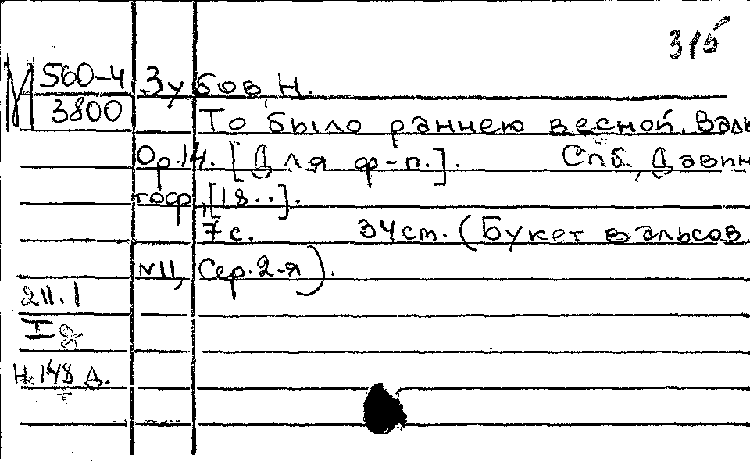 315
М 560-4 Зубов, Н.
3800 То было раннею весной. Валь
Ор.14. [Для ф-п.]. Спб., Давин
гоф, [18..].
7 с. 34 ст. (Букет вальсов.
№11, Сер. 2-я).
211.1
I
Н.148 Д.